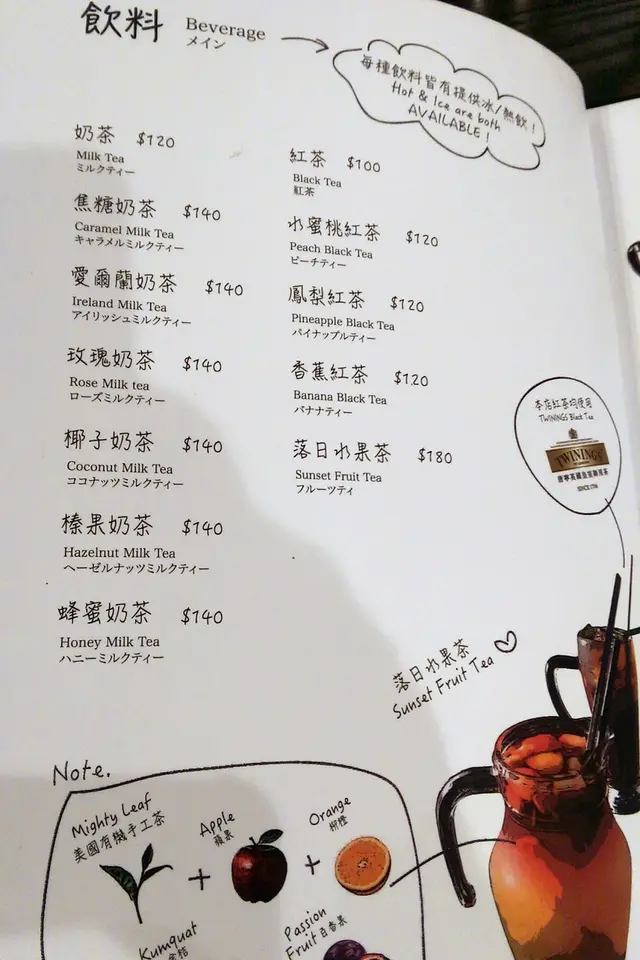 飲料 Beverage
メイン
每種飲料皆有提供冰/熱飲!
Hot & Ice are both
AVAILABLE!
奶茶 $120
Milk Tea
ミルクティー
焦糖奶茶 $140
Caramel Milk Tea
キャラメルミルクティー
愛爾蘭奶茶 $140
Ireland Milk Tea
アイリッシュミルクティー
玫瑰奶茶 $140
Rose Milk tea
ローズミルクティー
椰子奶茶 $140
Coconut Milk Tea
ココナッツミルクティー
榛果奶茶 $140
Hazelnut Milk Tea
ヘーゼルナッツミルクティー
蜂蜜奶茶 $140
Honey Milk Tea
ハニーミルクティー
紅茶 $100
Black Tea
紅茶
水蜜桃紅茶 $120
Peach Black Tea
ピーチティー
鳳梨紅茶 $120
Pineapple Black Tea
パイナップルティー
香蕉紅茶 $120
Banana Black Tea
バナナティー
落日水果茶 $180
Sunset Fruit Tea
フルーツティ
本店紅茶均使用
TWININGS Black Tea
TWININGS
唐寧英國皇室御用茶
SINCE 1706
落日水果茶
Sunset Fruit Tea
Note.
Mighty Leaf
美國有機手工茶
+
Apple
蘋果
+
Orange
柳橙
Kumquat
Passion
Fruit 百香果